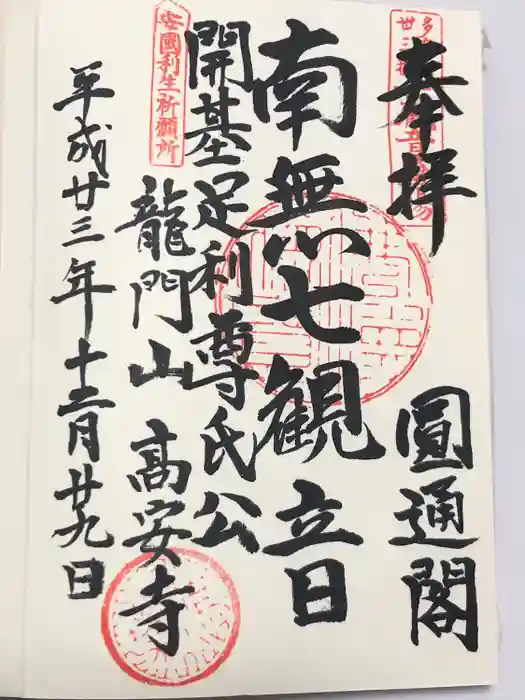 奉拝　圓通閣
南無七観立日
開基足利尊氏公
龍門山　高安寺
平成廿三年十二月廿九日
安國利生祈願所